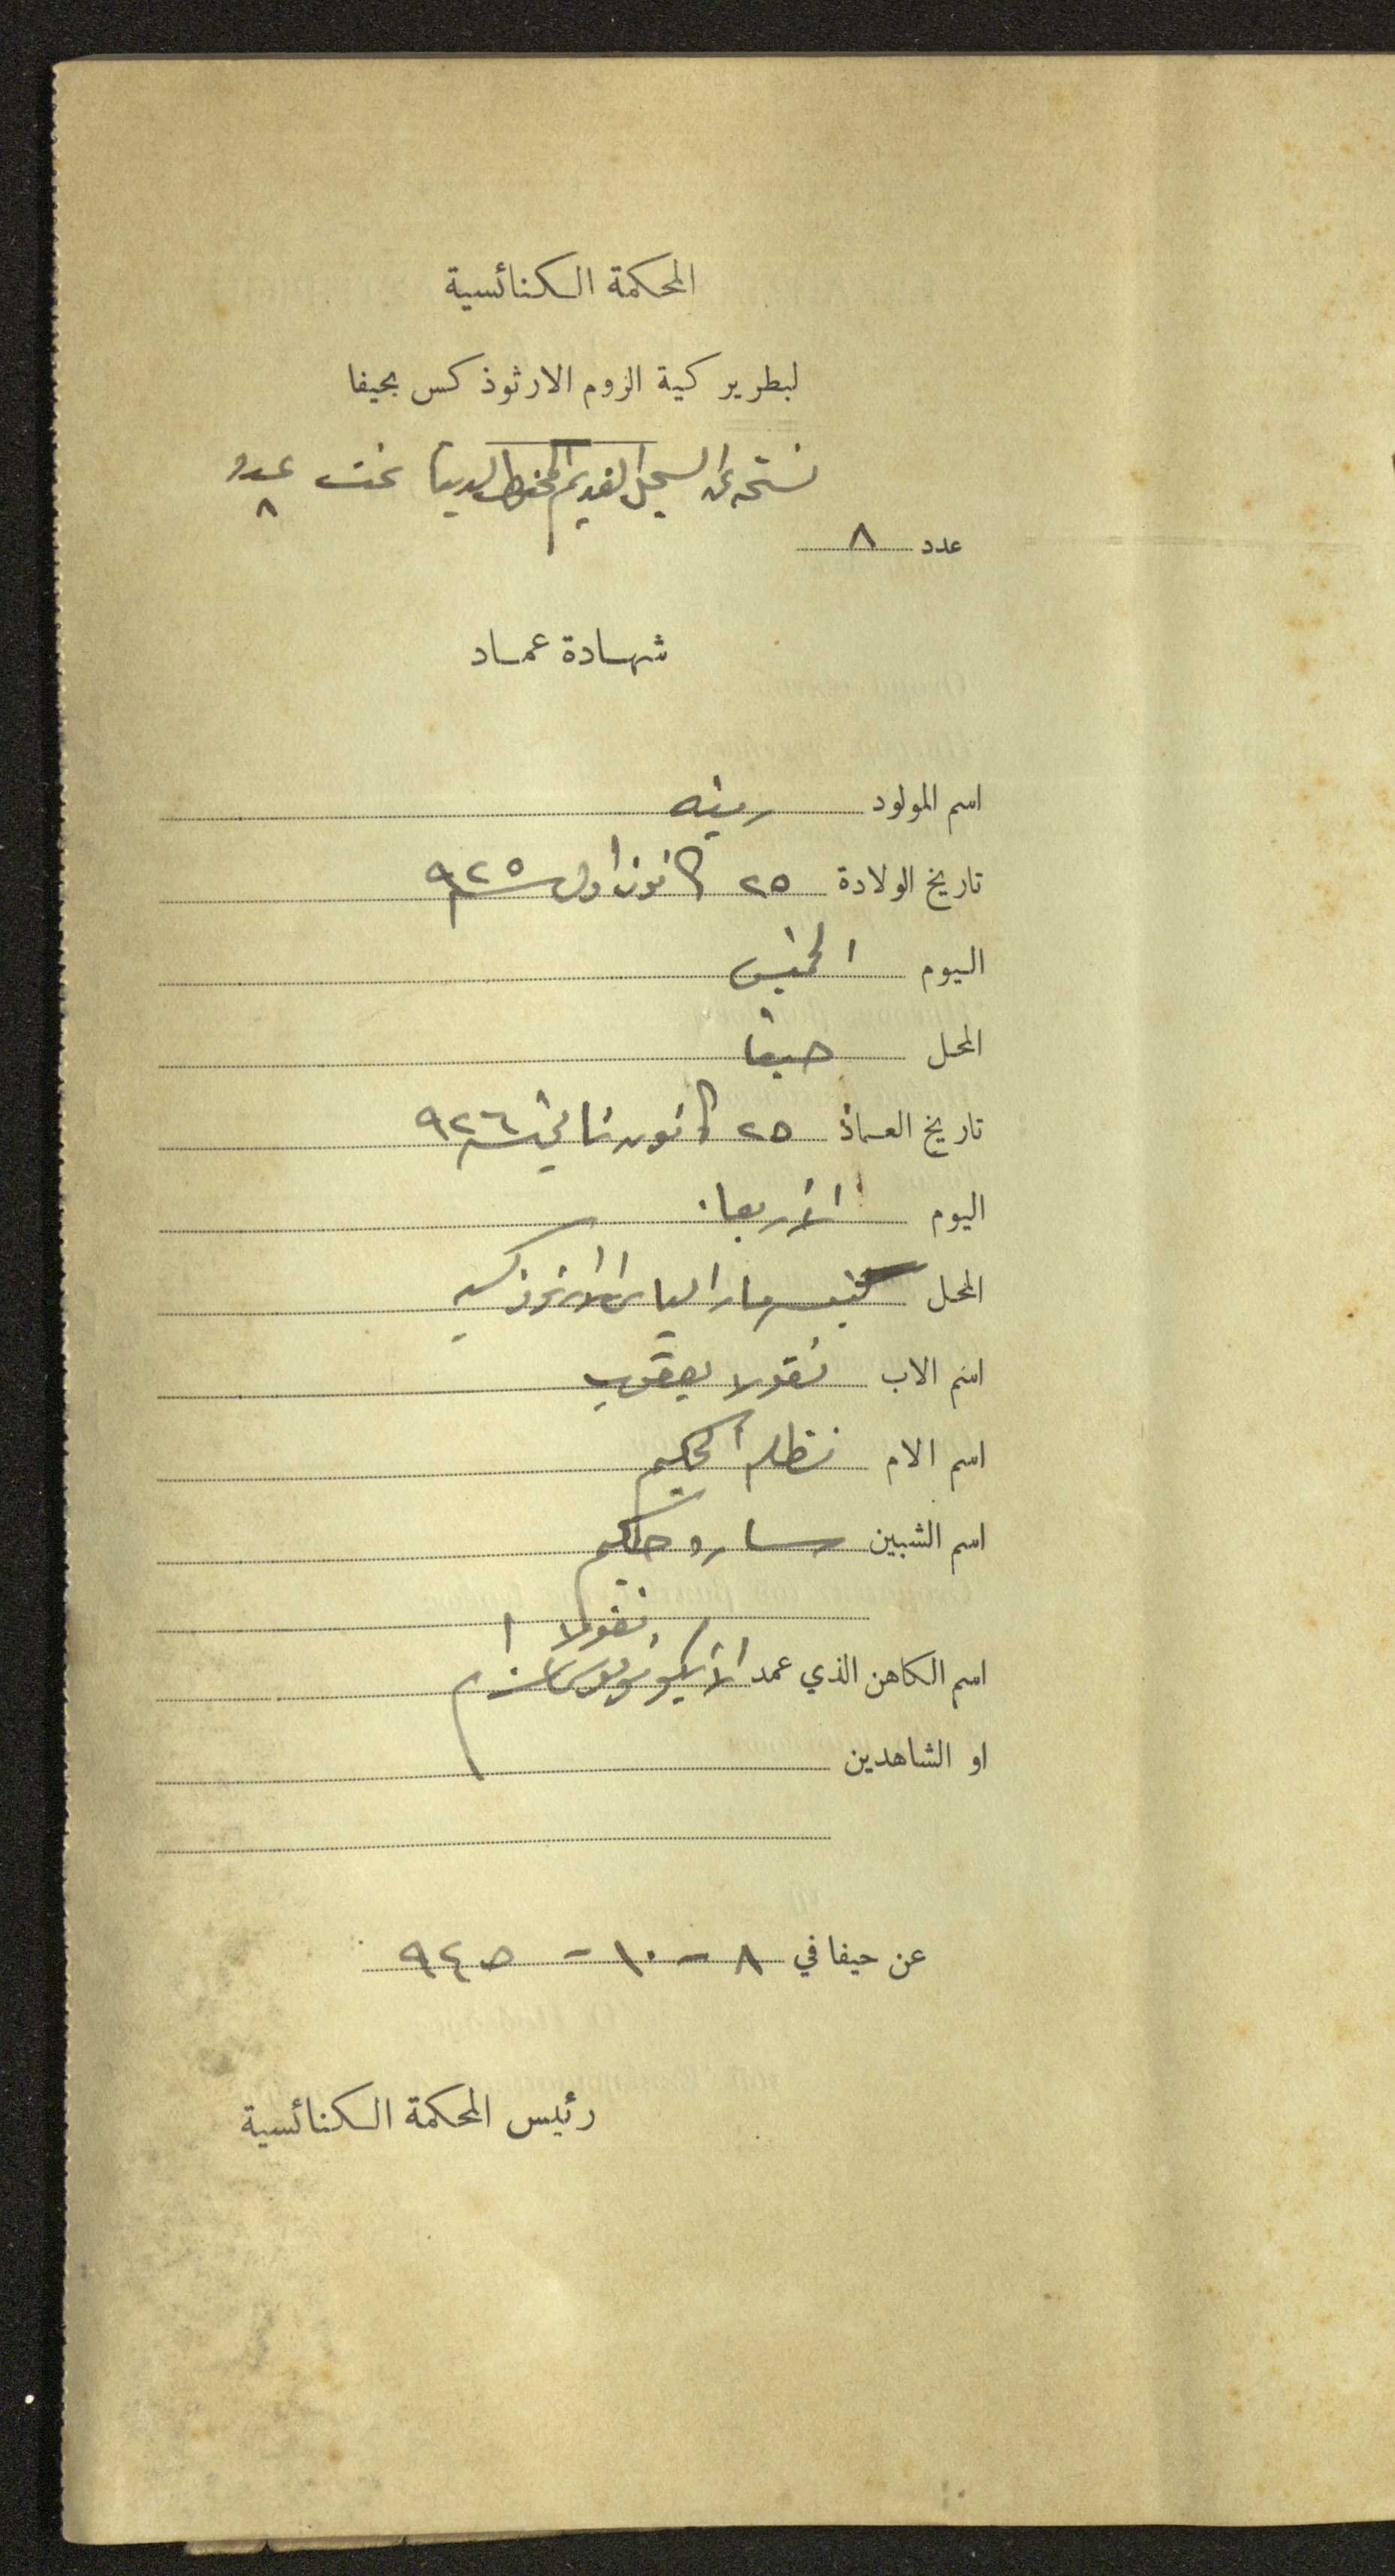 المحكمة الكنائسية
لبطرير كية الروم الارثوذ كس بحيفا
نسخة عن السجل القديم المحفوظ لدينا تحت عدد
٨
عدد ٨
شهادة عماد
اسم المولود رينه
تاريخ الولادة ٢٥ كانون اول سنة ٩٢٥
اليوم الخميس
المحل حيفا
تاريخ العماذ ٢٥ كانون ثاني سنة ٩٢٦
اليوم الأربعاء
المحل كنيسة مار الياس الارثوذكسية
اسم الاب نقولا يعقوب
اسم الام نظله الحكيم
اسم الشبين ساره حكيم
نقولا
اسم الكاهن الذي عمد الأيكونوموس
او الشاهدين
عن حيفا في ٨ - ١٠ - ٩٤٥
رئيس المحكمة الكنائسية